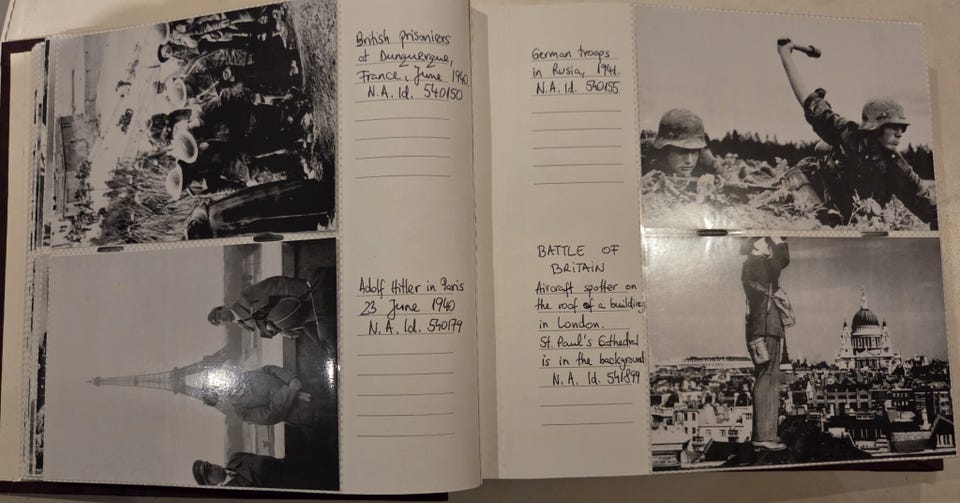 British prisoniers
at Dunquerque,
France, June 1940
N.A. Id. 540150
Adolf Hitler in Paris
23 June 1940
N.A. Id. 540179
German troops
in Rusia, 1941.
N.A. Id. 540155
BATTLE OF
BRITAIN
Aircraft spotter on
the roof of a building
in London.
St. Paul's Cathedral
is in the background
N.A. Id. 541899